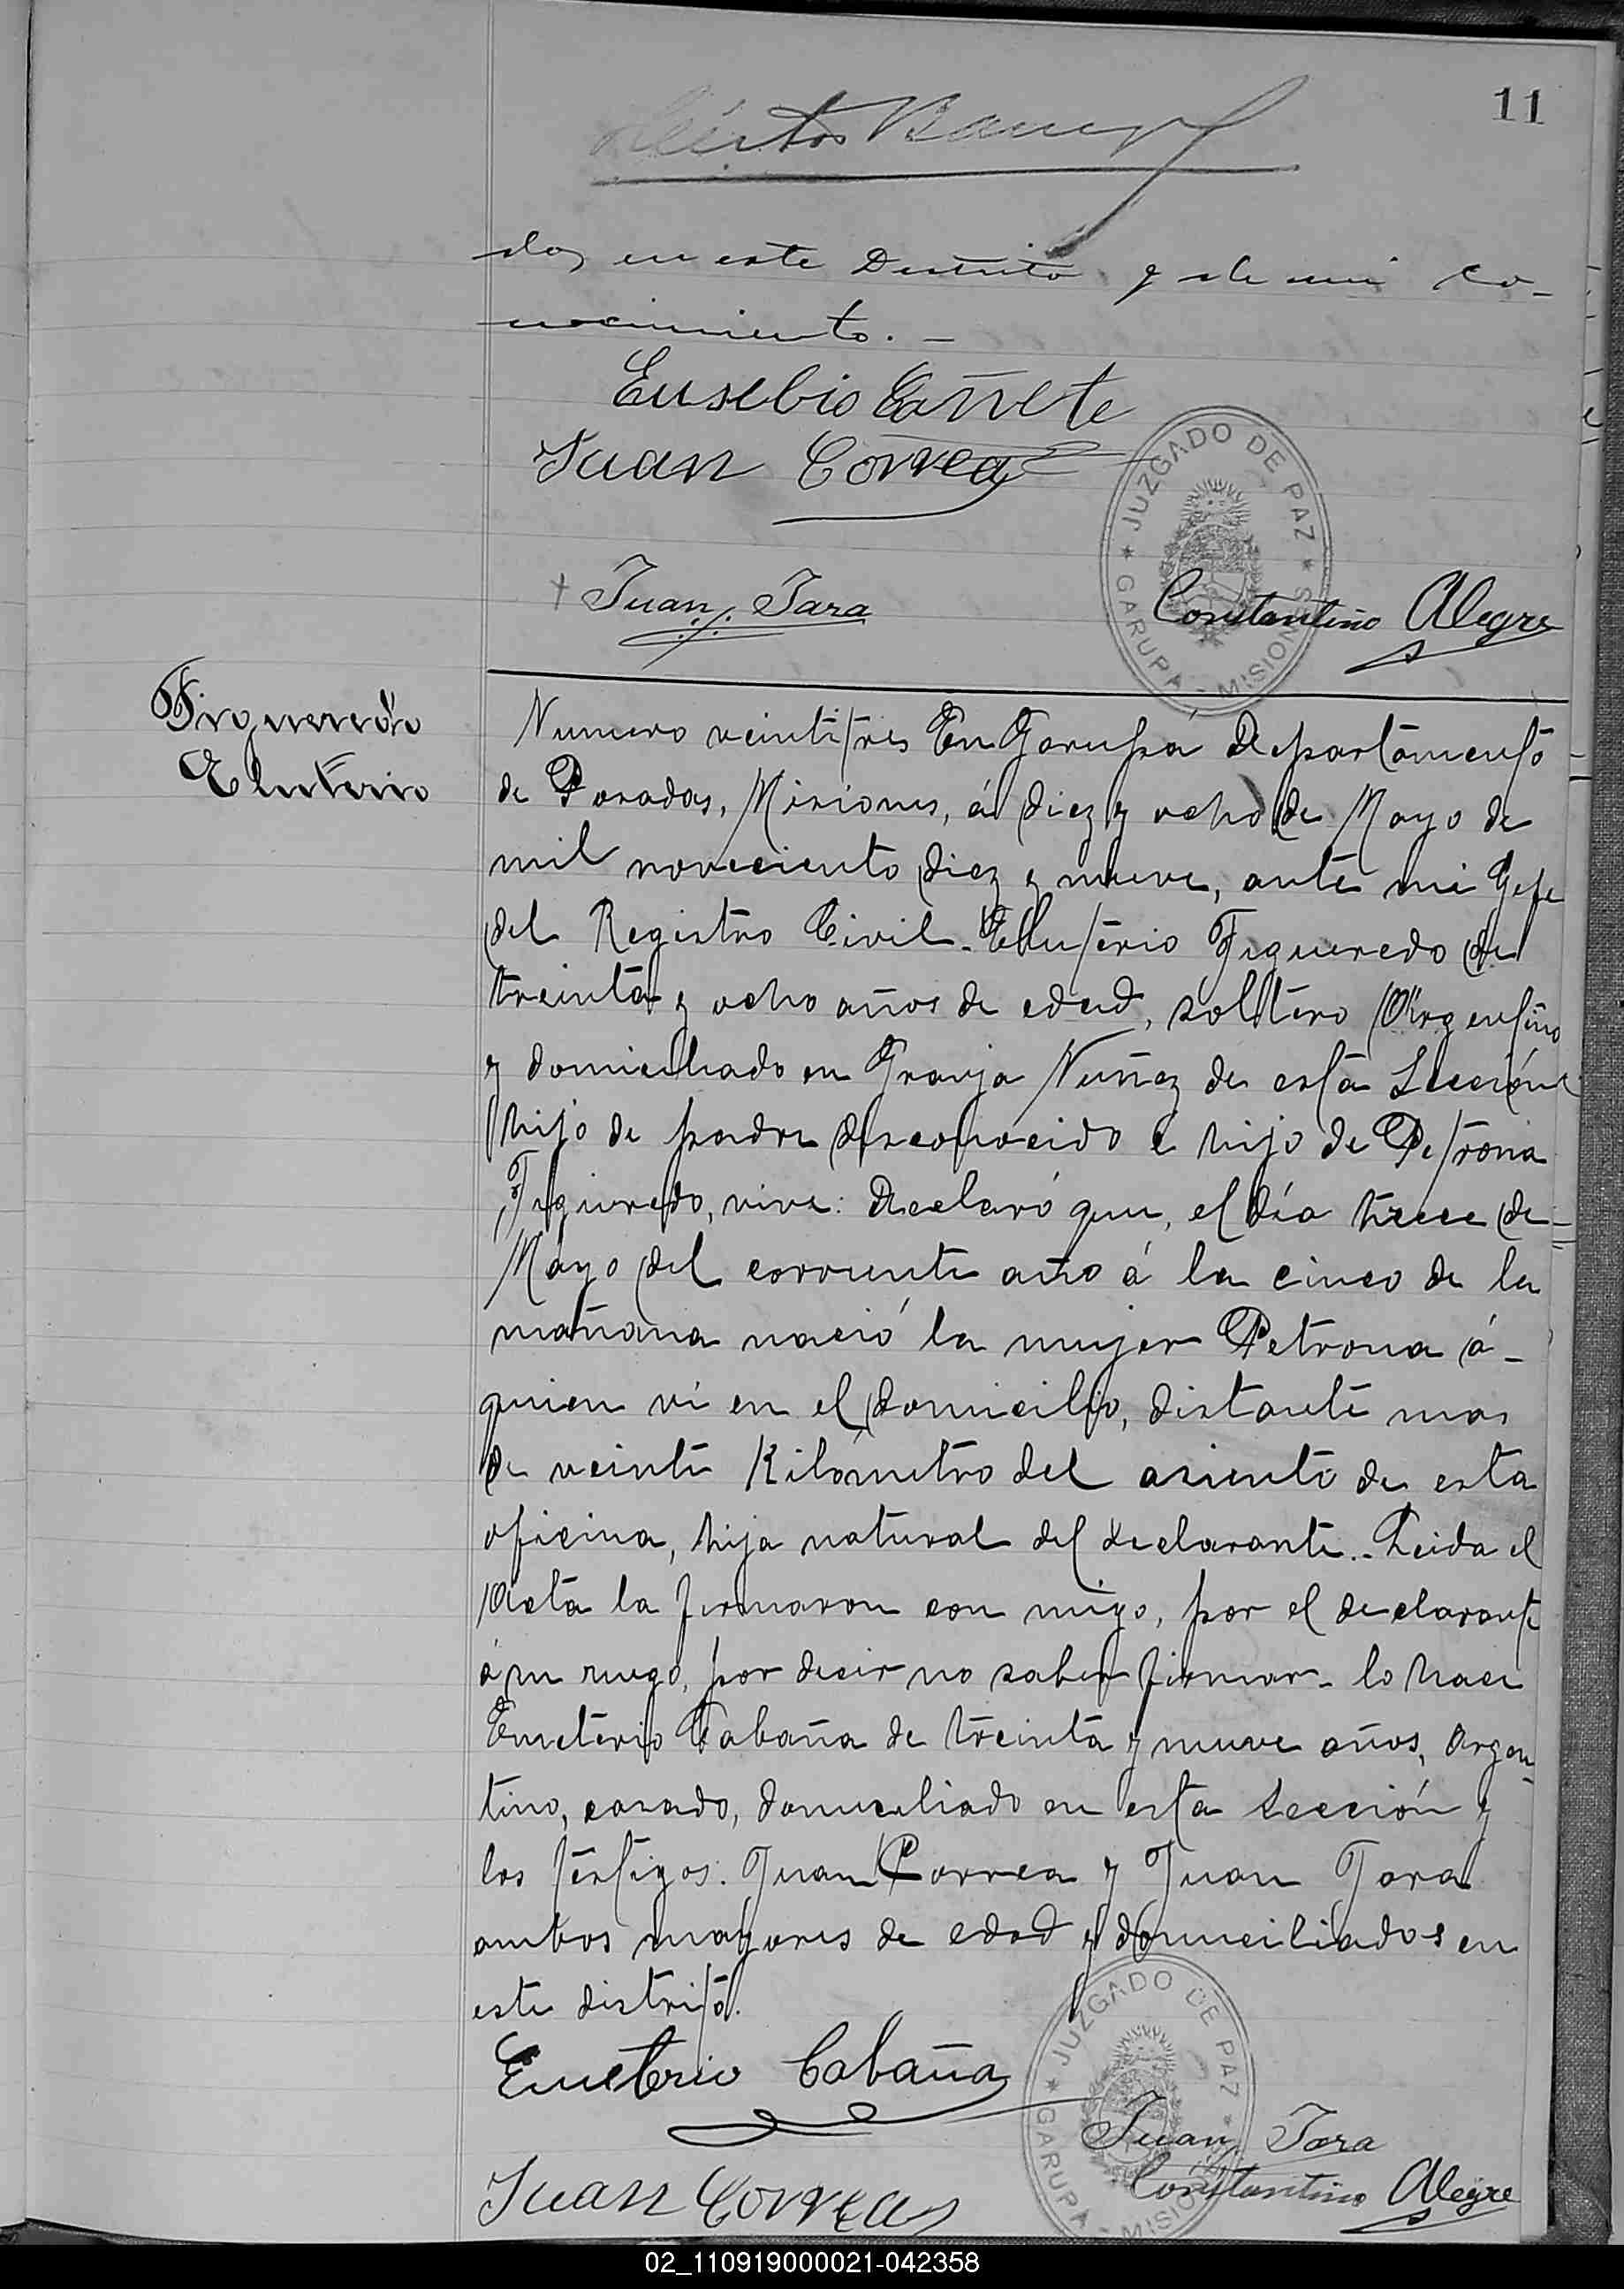 11
dos en este Destrito y de mi co-
nocimiento. -
Eusebio Cañete
Juan Correa
JUZGADO DE PAZ
GARUPA - MISIONES
Juan Jara
Constantino Alegre
Figueredo
Eluterio
Numero veintitres En Garupá Departamento
de Posadas, Misiones, á diez y ocho de Mayo de
mil noveciento diez y nueve, ante mi Gefe
del Registro Civil. Eluterio Figueredo de
treinta y ocho años de edad, soltero Argentino
y domiciliado en Granja Nuñez de esta Sección
hijo de padre desconocido e hijo de Petrona
Figueredo, vive: Declaró que, el día trece de
Mayo del corriente año á la cinco de la
mañana nació la mujer Petrona á-
quien ví en el domicilio, distante mas
de veinte Kilómetro del asiento de esta
oficina, hija natural del declarante.. Leida el
Acta la firmaron con migo, por el declarante
á su ruego, por decir no saber firmar - lo hace
Emeterio Cabaña de treinta y nueve años, Argen-
tino, casado, domiciliado en esta Sección y
los testigos: Juan Correa y Juan Jara
ambos mayores de edad y domiciliados en
este distrito.
Emeterio Cabaña
JUZGADO DE PAZ
GARUPA - MISIONES
Juan Jara
Constantino Alegre
Juan Correa
02_110919000021-042358